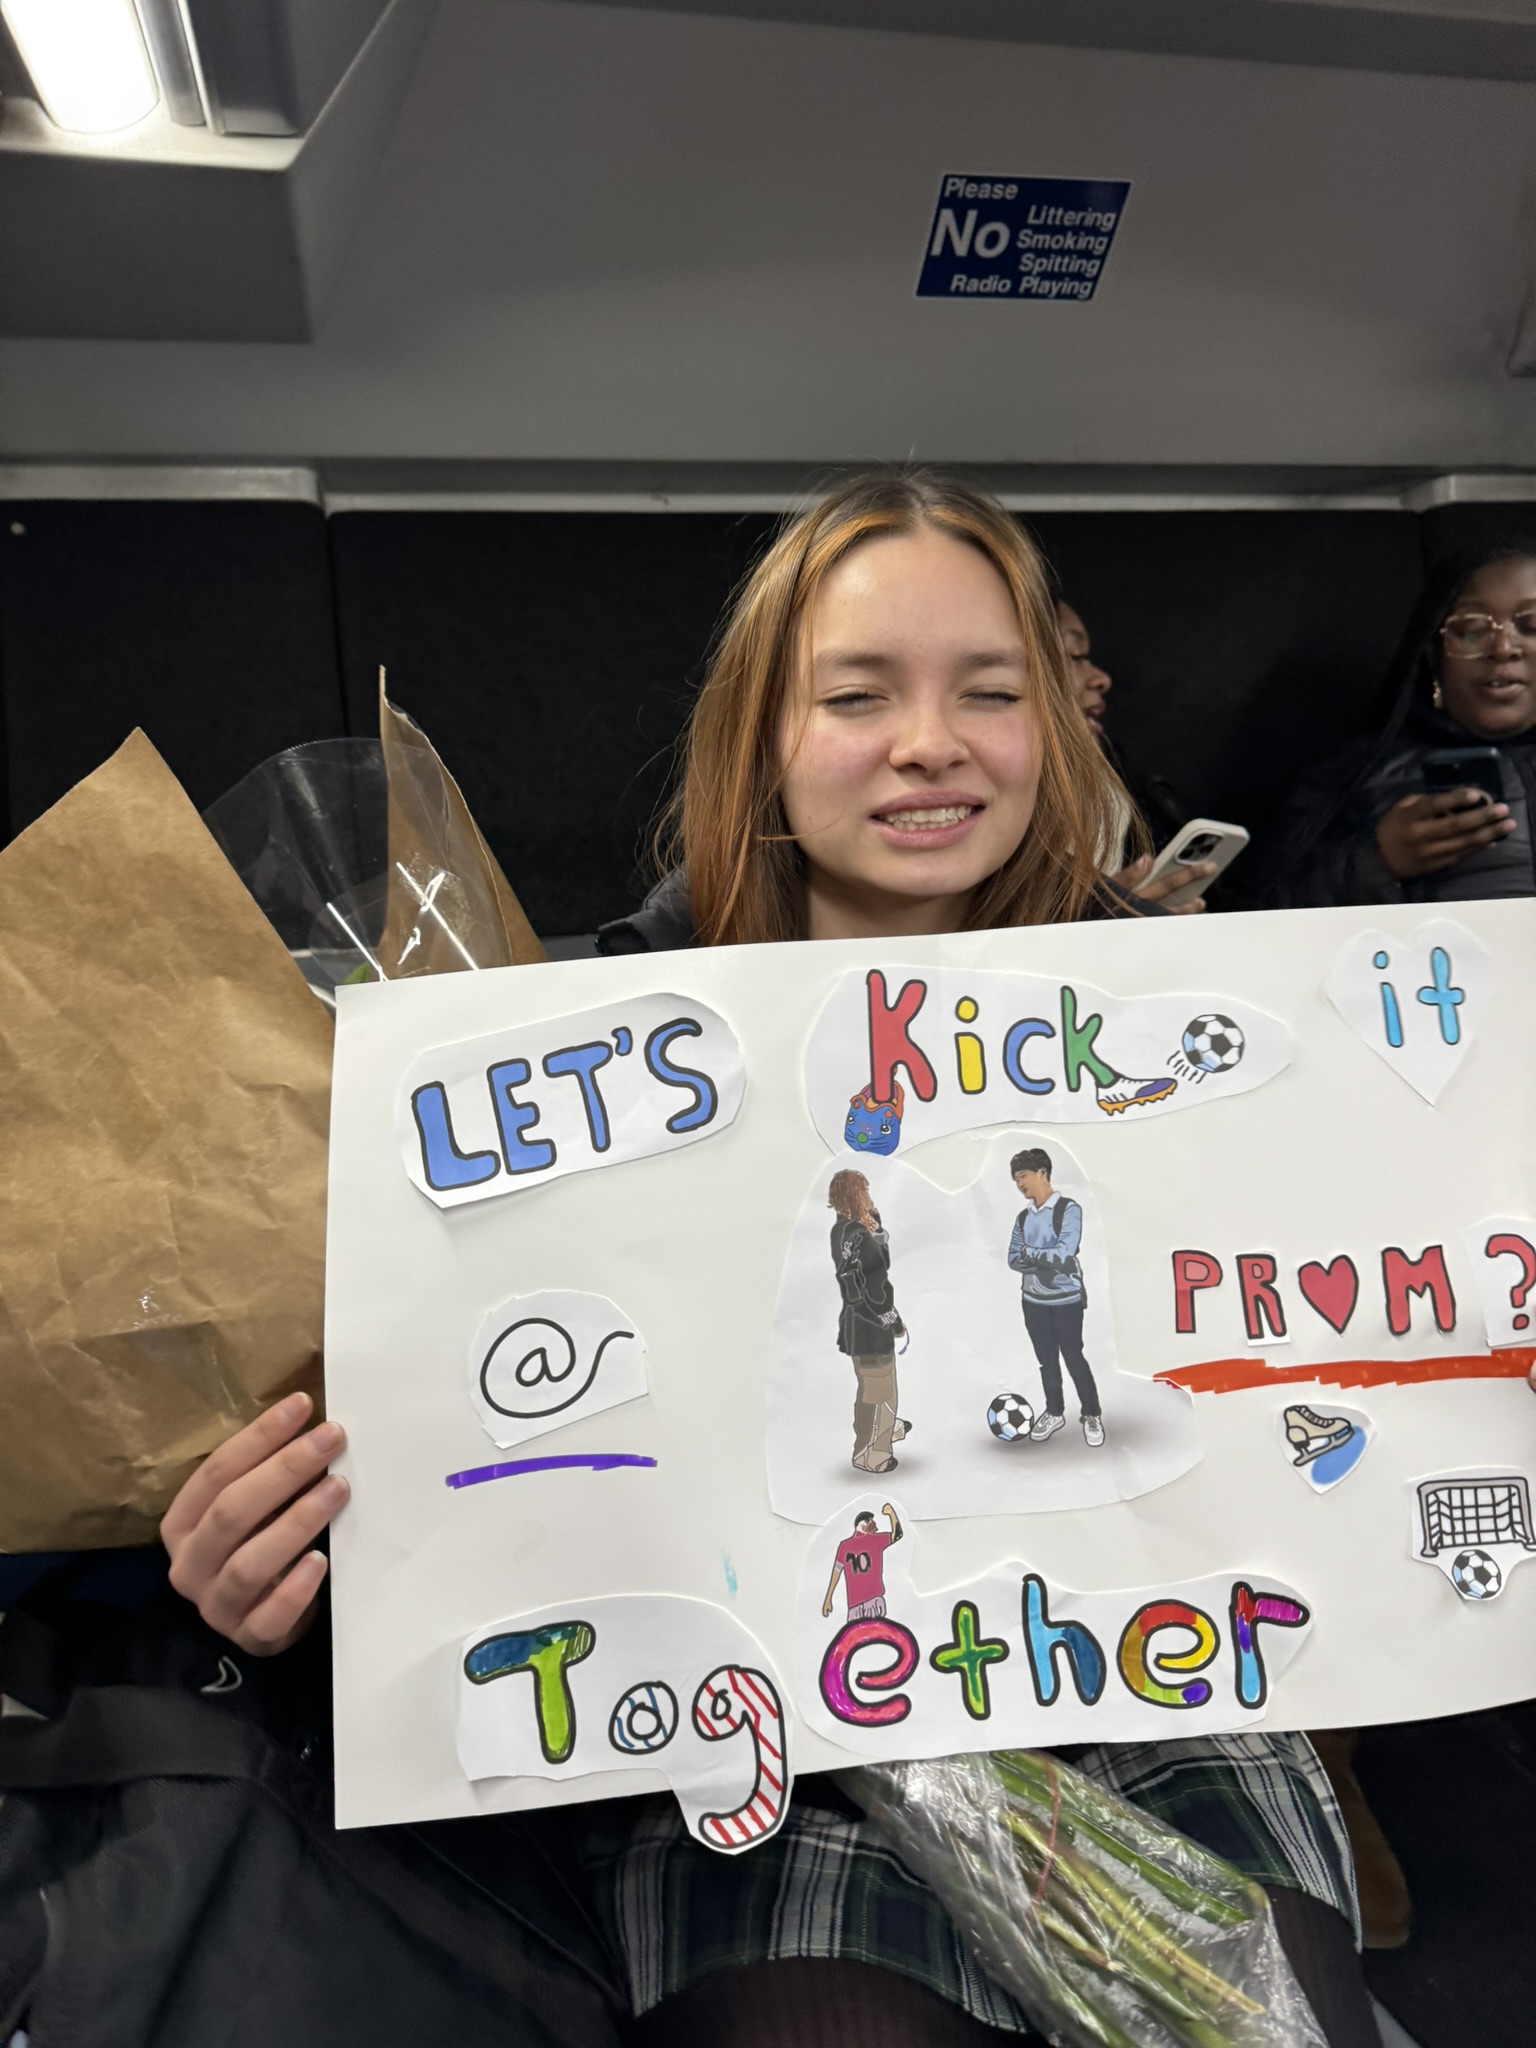 Please
No Littering
Smoking
Spitting
Radio Playing
LET'S Kick it
@ PR♥M?
10
Together